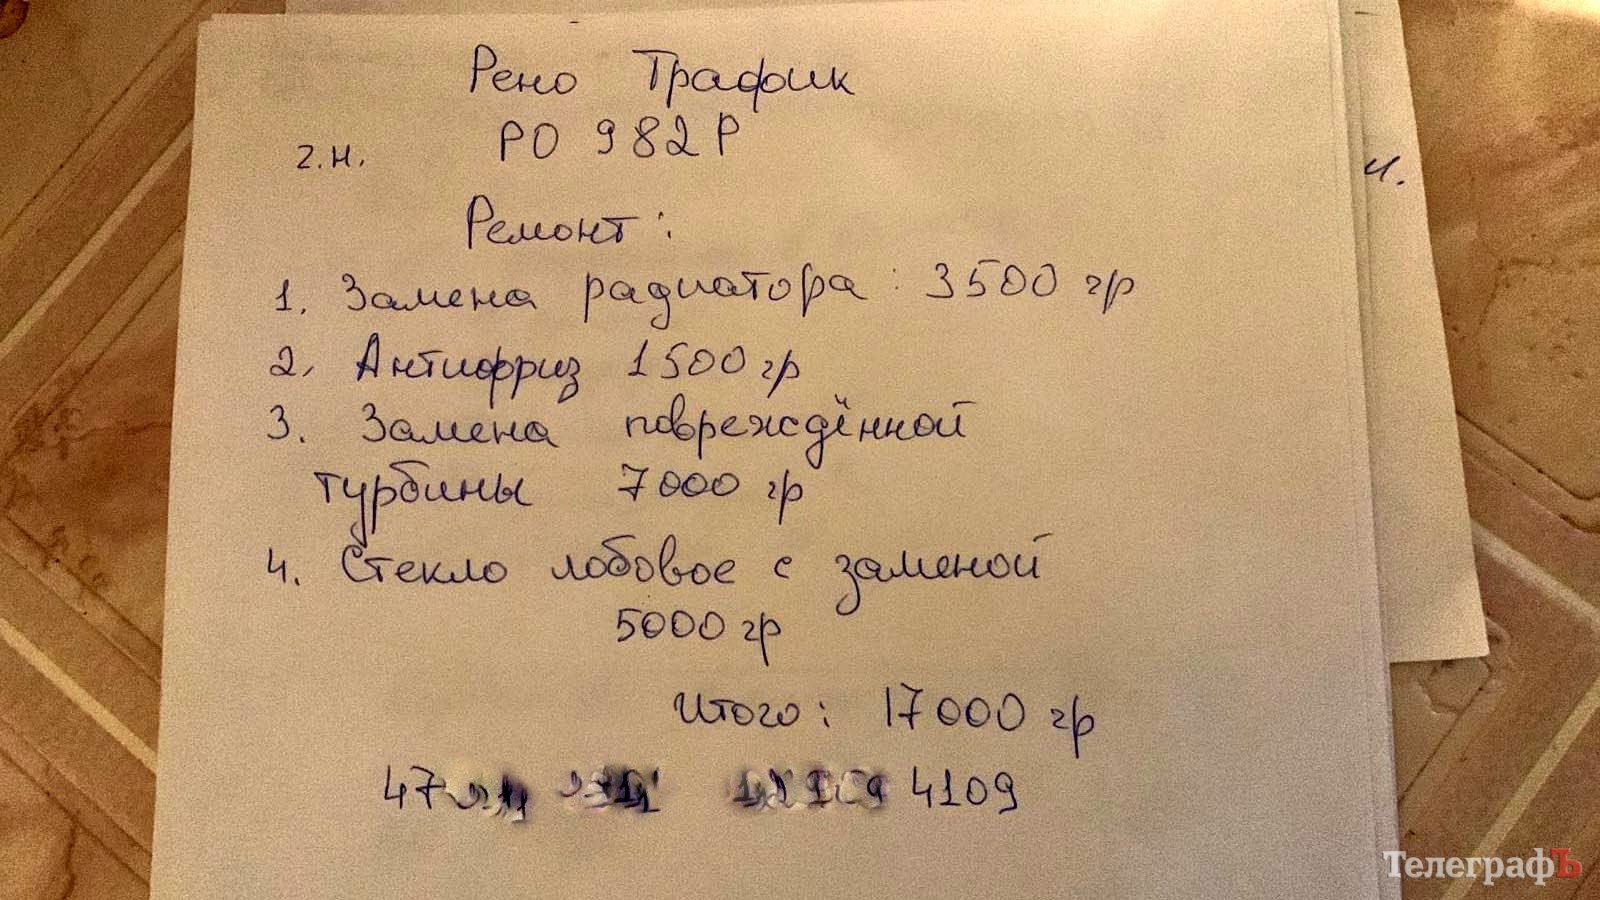 Рено Трафик
г.н. РО 982 Р
Ремонт:
1. Замена радиатора: 3500 гр
2. Антифриз 1500 гр
3. Замена повреждённой
турбины 7000 гр
4. Стекло лобовое с заменой
5000 гр
Итого: 17000 гр
47 4109
ТелеграфЪ